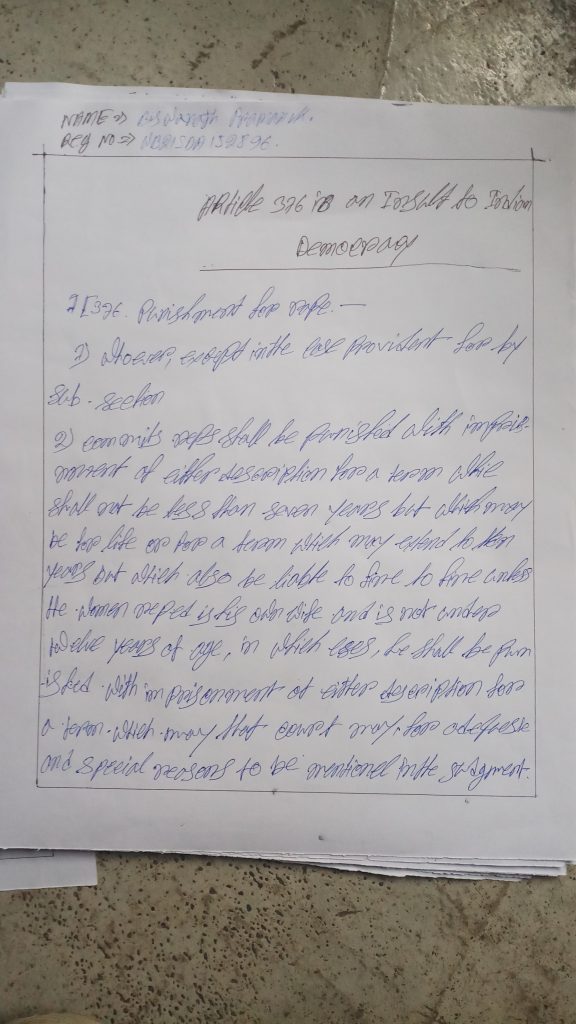 NAME ⇒
REG NO ⇒
Article 376 is an Insult to Indian
Democracy
2[376. Punishment for rape. —
1) Whoever, except in the case provident for by
sub-section
2) commits reps shall be punished with impris-
onment of either description for a term while
shall not be less than seven years but which may
be for life or for a term which may extend to then
years but which also be liable to fine to fine unless
the women reped is his own wife and is not under
twelve years of age, in which cases, he shall be pun
ished with imprisonment of either description for
a term which may that court may, for adequate
and special reasons to be mentioned in the judgment.